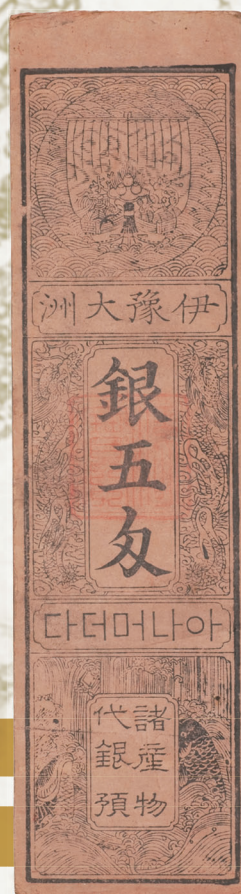 伊豫大洲
銀五匁
아나머더다
諸産物
代銀預